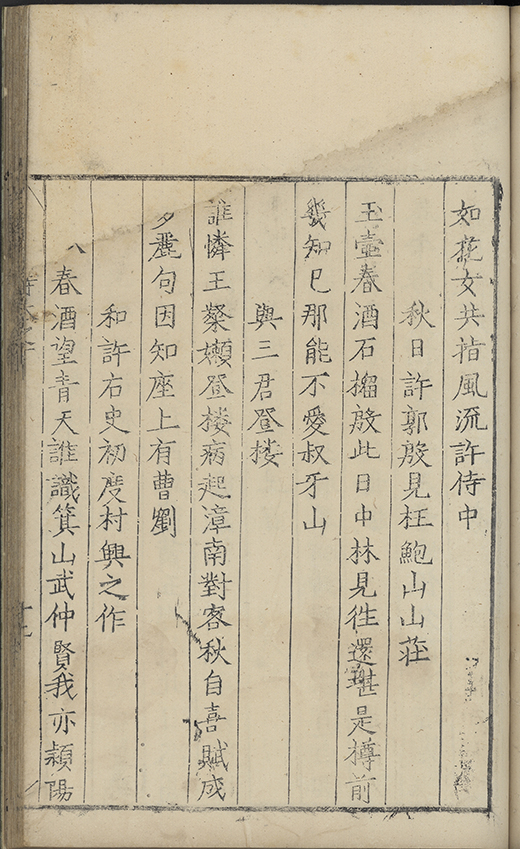 如花女共指風流許侍中
秋日許郭殷見枉鮑山山莊
玉壺春酒石榴殷此日中林見徃還堪是樽前
幾知已那能不愛叔牙山
與三君登楼
誰憐王粲嬾登楼病起漳南對客秋自喜賦成
多麗句因知座上有曹劉
和許右史初度村興之作
春酒望青天誰識箕山武仲賢我亦潁陽